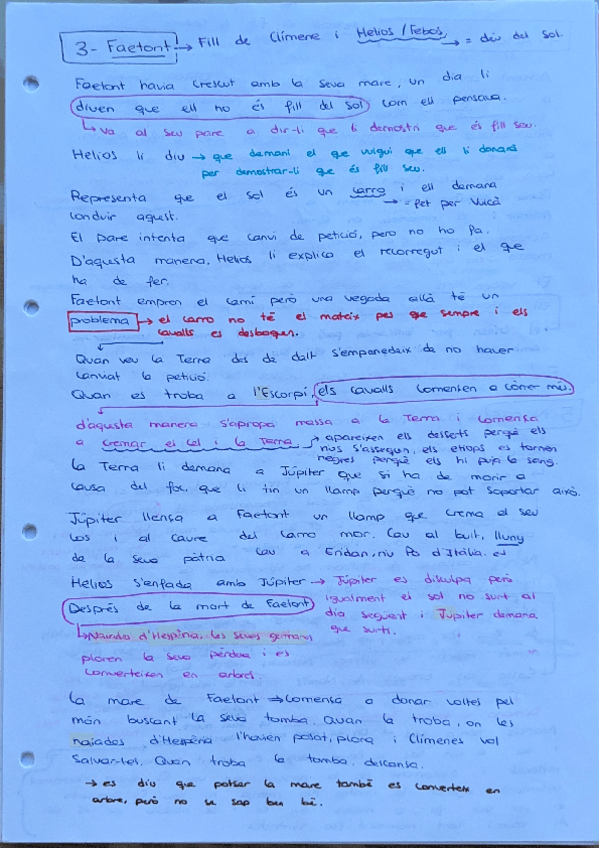 3- Faetont → Fill de Clímene i Helios/Febos, → = déu del sol.
Faetont havia crescut amb la seva mare, un dia li
diuen que ell no és fill del sol com ell pensava.
↳ va al seu pare a dir-li que li demostri que és fill seu.
Helios li diu → que demani el que vulgui que ell li donarà
per demostrar-li que és fill seu.
Representa que el sol és un carro i ell demana
conduir aquest. → = fet per Vulcà
El pare intenta que canvi de petició, pero no ho fa.
D'aquesta manera, Helios li explica el recorregut i el que
ha de fer.
Faetont empren el camí però una vegada allà té un
problema → el carro no té el mateix pes que sempre i els
cavalls es desboquen.
Quan veu la Terra des de dalt s'empenedeix de no haver
canviat la petició.
Quan es troba a l'Escorpí, els cavalls comencen a córrer més.
d'aquesta manera s'apropa massa a la Terra i comença
a cremar el cel i la Terra → apareixen els desserts perquè els
rius s'assequen, els etiops es tornen
negres perquè els hi puja la sang.
La Terra li demana a Júpiter que si ha de morir a
causa del foc, que li tiri un llamp perquè no pot soportar això.
Júpiter llença a Faetont un llamp que crema el seu
cos i al caure del carro mor. Cau al buit, lluny
de la seva pàtria cau a Eridan, riu Po d'Itàlia.
Helios s'enfada amb Júpiter → Júpiter es disculpa però
igualment el sol no surt al
dia següent i Júpiter demana
que surti.
Després de la mort de Faetont
↳ Nàiades d'Hespèria, les seves germanes
ploren la seva pèrdua i es
converteixen en arbres.
La mare de Faetont → comença a donar voltes pel
món buscant la seva tomba. Quan la troba, on les
naiades d'Hespèria l'havien posat, plora i Clímenes vol
salvar-les. Quan troba la tomba, descansa.
→ es diu que potser la mare també es converteix en
arbre, però no se sap ben bé.